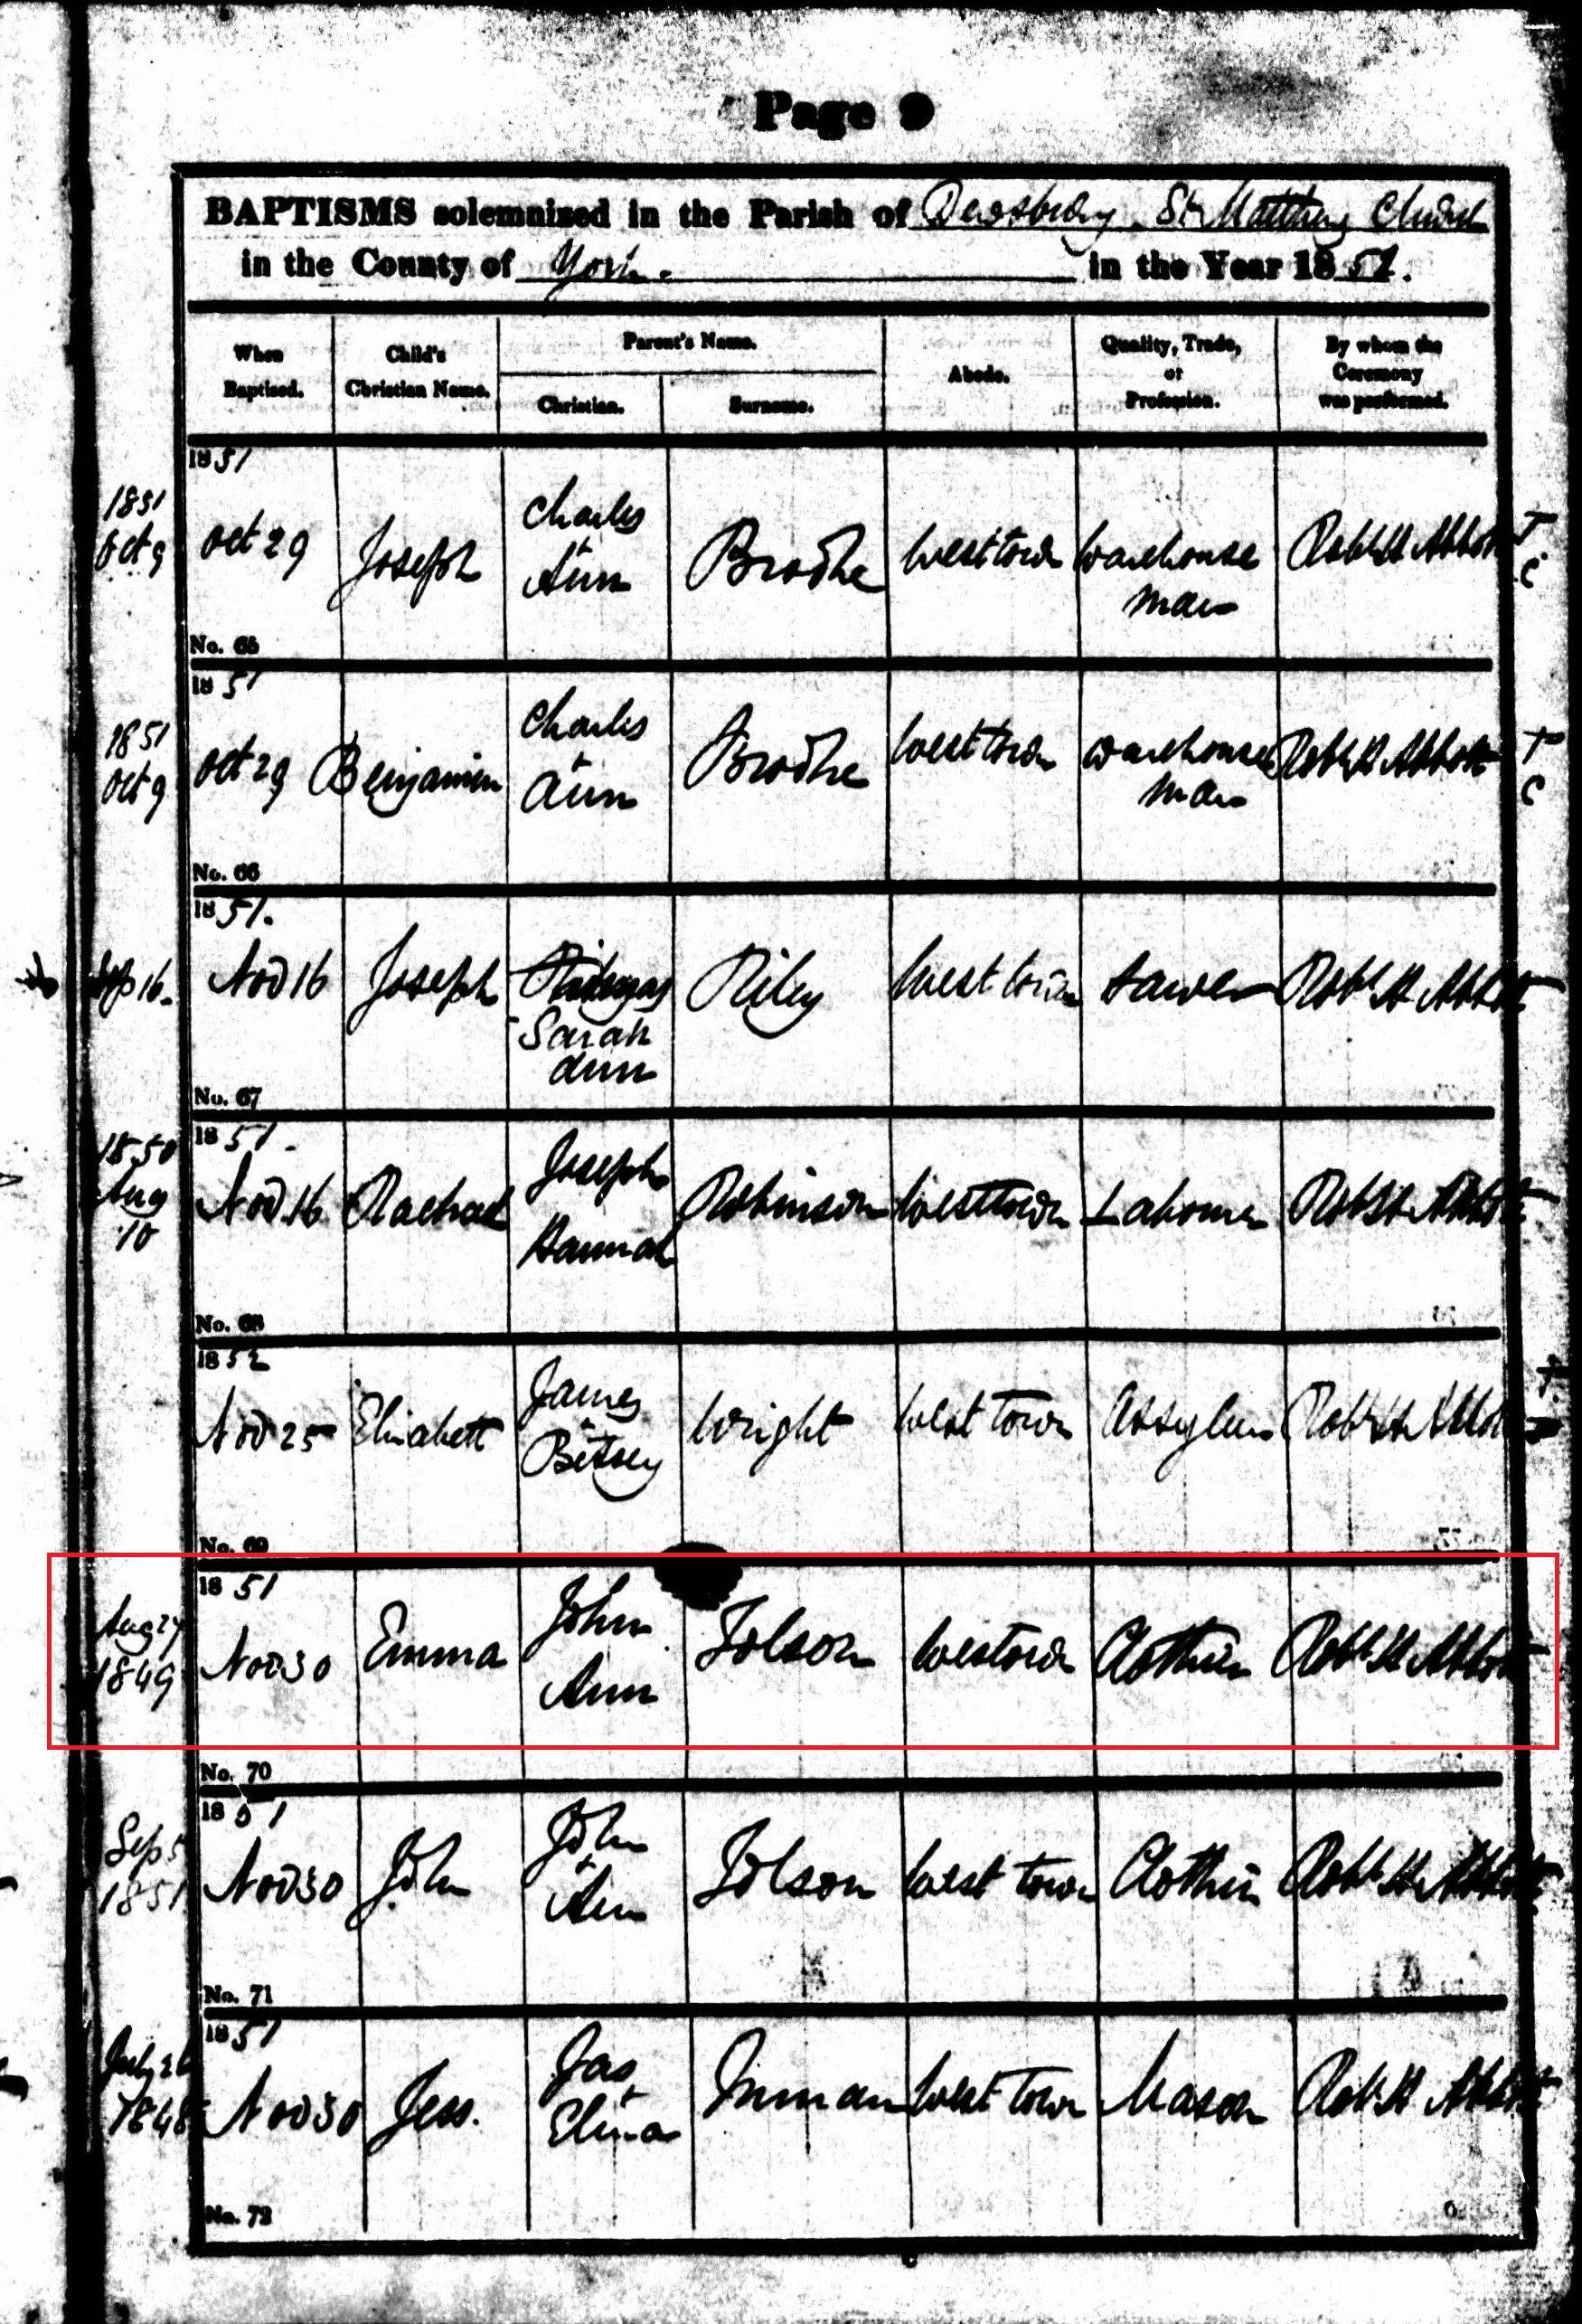 Page 9
BAPTISMS solemnized in the Parish of Dewsbury. St Matthews Church
in the County of York. in the Year 1851.
When Baptized.
Child's Christian Name.
Parent's Name.
Christian.
Surname.
Abode.
Quality, Trade, or Profession.
By whom the Ceremony was performed.
1851
1851 Oct 9 Oct 29 Joseph Charles & Ann Brodhe West town Warehouse man Robt H Abbott T. C
No. 65
1851
1851 Oct 9 Oct 29 Benjamin Charles & Ann Brodhe West town Warehouse man Robt H Abbott T C
No. 66
1851.
Sep 16. Nov 16 Joseph Sarah Ann Riley West town Sawer Robt H Abbott
No. 67
1851.
1850 Aug 10 Nov 16 Rachael Joseph Hannah Robinson Westtown Labourer Robt H Abbott
No. 68
1852
Nov 25 Elizabeth James & Betsey Wright West town Robt H Abbott
No. 69
1851
Aug 27 1849 Nov 30 Emma John Ann Jolson Westown Clothier Robt H Abbott
No. 70
1851
Sep 5 1851 Nov 30 John John & Ann Jolson West town Clothier Robt H Abbott
No. 71
1851
July 26 1848 Nov 30 Jess. Jas & Eliza Inman West town Mason Robt H Abbott
No. 72